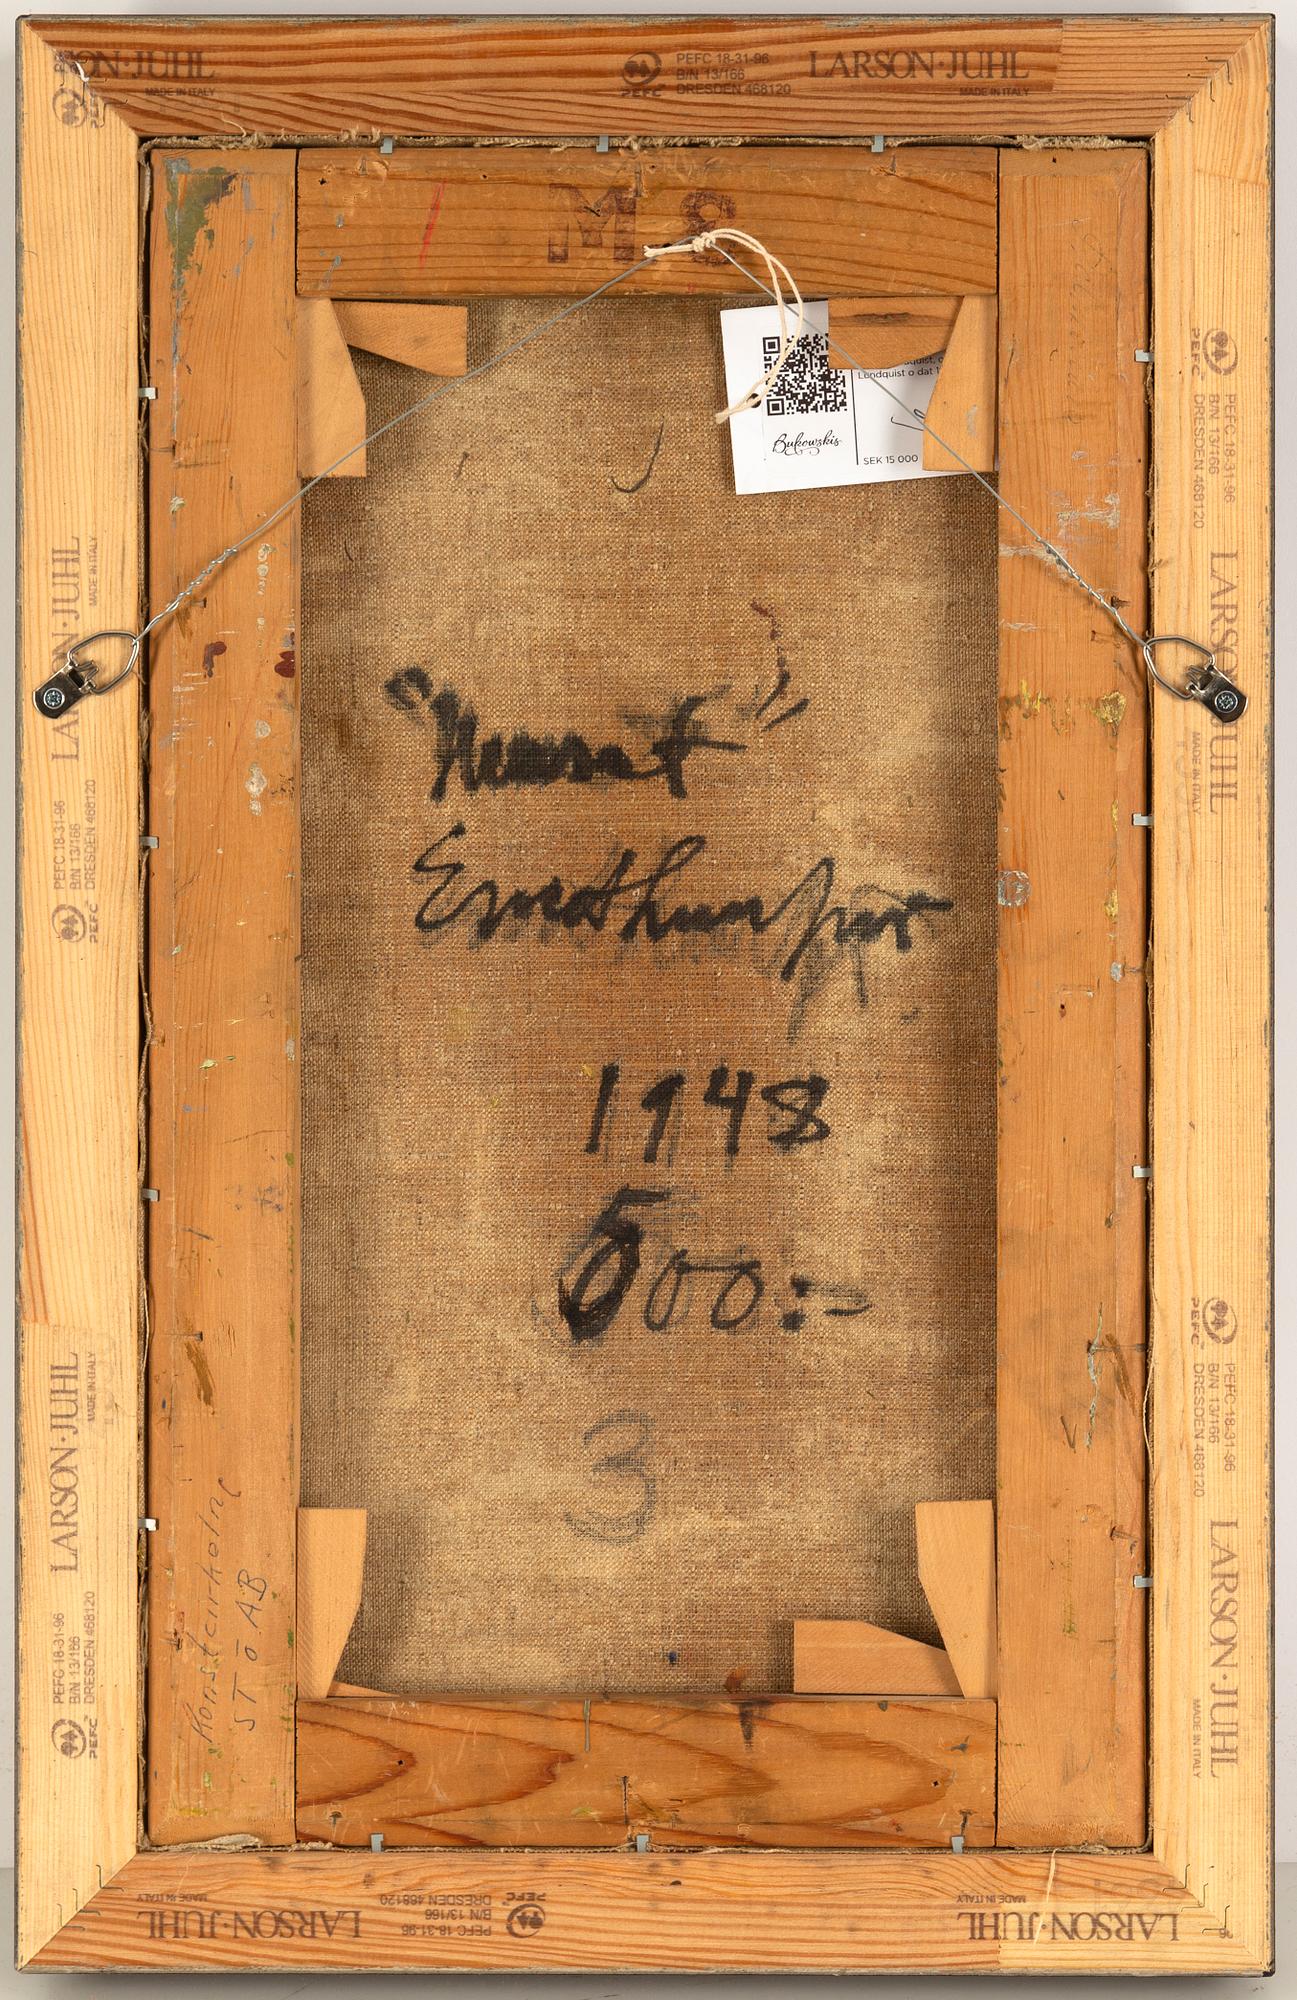 LARSON·JUHL
MADE IN ITALY
PEFC
PEFC 18-31-96
B/N 13/166
DRESDEN 468120
LARSON·JUHL
MADE IN ITALY
M 8
Lundquist o dat 1
Bukowskis
SEK 15 000
PEFC
PEFC 18-31-96
B/N 13/166
DRESDEN 468120
LARSON·JUHL
MADE IN ITALY
LARSON·JUHL
MADE IN ITALY
PEFC 18-31-96
B/N 13/166
DRESDEN 468120
PEFC
1948
500:-
3
LARSON·JUHL
MADE IN ITALY
PEFC 18-31-96
B/N 13/166
DRESDEN 468120
PEFC
PEFC
PEFC 18-31-96
B/N 13/166
DRESDEN 468120
LARSON·JUHL
MADE IN ITALY
Konstcirkeln
STOAB
LARSON·JUHL
MADE IN ITALY
PEFC
PEFC 18-31-96
B/N 13/166
DRESDEN 468120
LARSON·JUHL
MADE IN ITALY